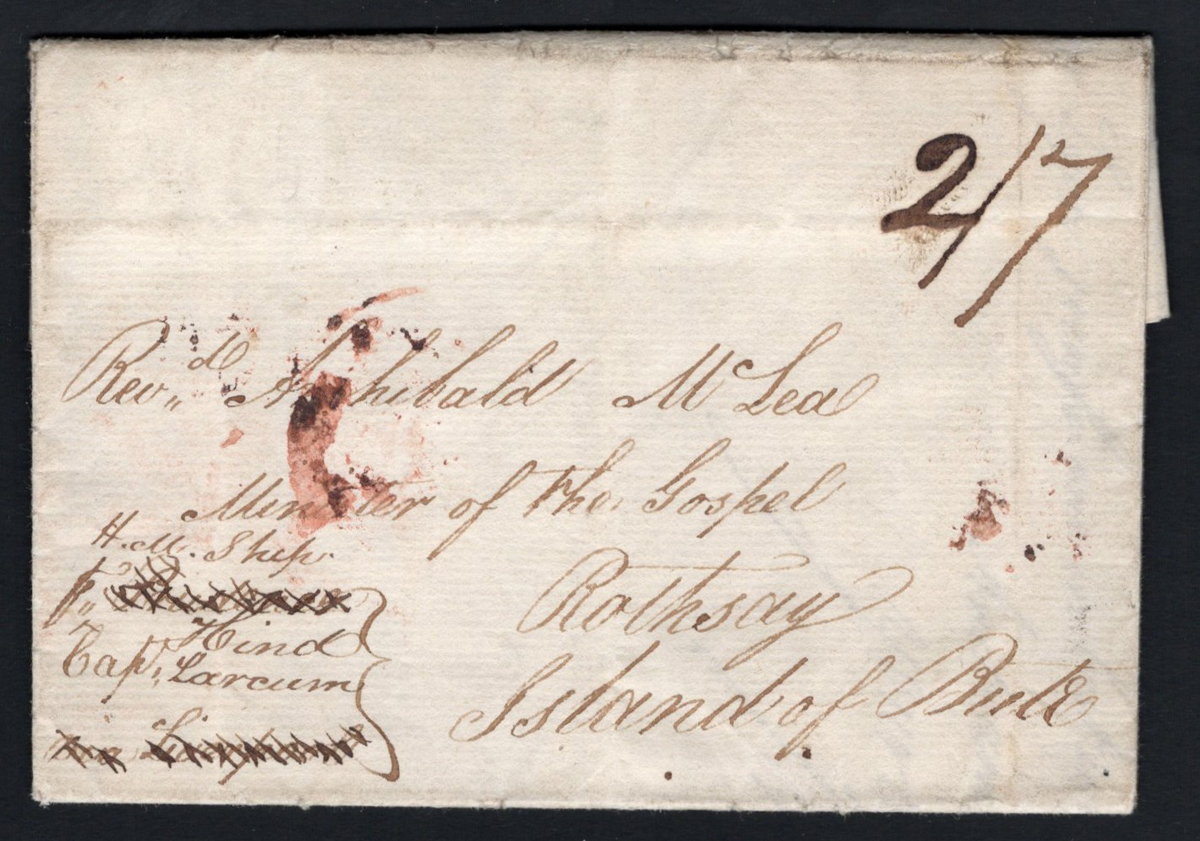 2/7
Revd Archibald McLea
Minister of the Gospel
Rothsay
Island of Bute
H. M. Ship
Hind
Capt. Larcum